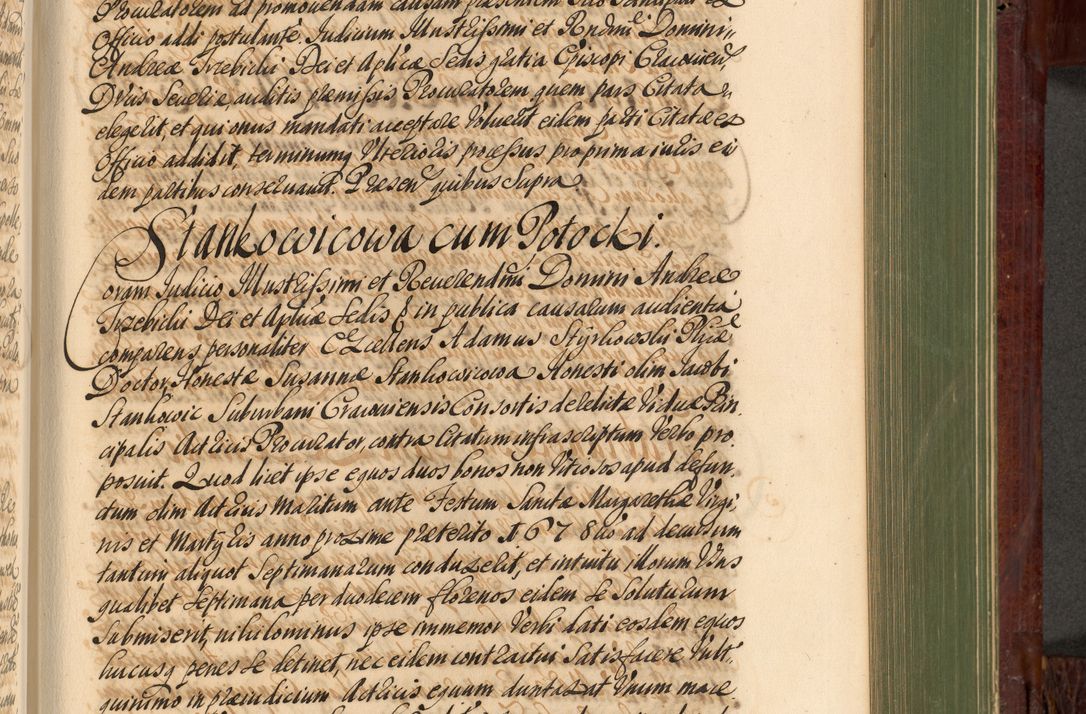 Procuratorem ad promovendam causam praesentem
Officio addi postulante. Judicium Illustrissimi et Rndmi Domini
Andreæ Trzebicki Dei et Aplicæ Sedis gratia Episcopi Cracovien
Ducis Severiæ auditis præmissis Procuratorem quem pars Citata
elegerit, et qui onus mandati acceptare voluerit eidem parti Citatæ ex
Officio addidit, terminumq ulterioris processus pro prima iuris ei
dem partibus conservavit. Præsen quibus Supra
Stankowicowa cum Potocki.
Coram Judicio Illustrissimi et Reverendmi Domini Andreæ
Trzebicki Dei et Aplicæ Sedis & in publica causarum audientia
comparens personaliter Excellens Adamus Styrkowski Phiæ
Doctor, Honestæ Susannæ Stankowicowa Honesti olim Jacobi
Stankowic Suburbani Cracoviensis Consortis derelictæ viduæ Prin
cipalis Actricis Procurator, contra Citatum infrascriptum verbo pro
posuit. Quod licet ipse equos duos bonos non vitiosos apud defun
ctum olim Actricis Maritum ante Festum Sanctæ Margarethæ Virgi
nis et Martyris anno proxime præterito 1678vo ad decursum
tantum aliquot Septimanarum conduxerit, et intuitu illorum Uns
qualibet septimana per duodecim florenos eidem se soluturum
submiserit, nihilominus ipse immemor verbi dati eosdem equos
hucusq penes se detinet, nec eidem contractui satisfacere vult.
quinimo in præiudicium Actricis equum duntaxat unum